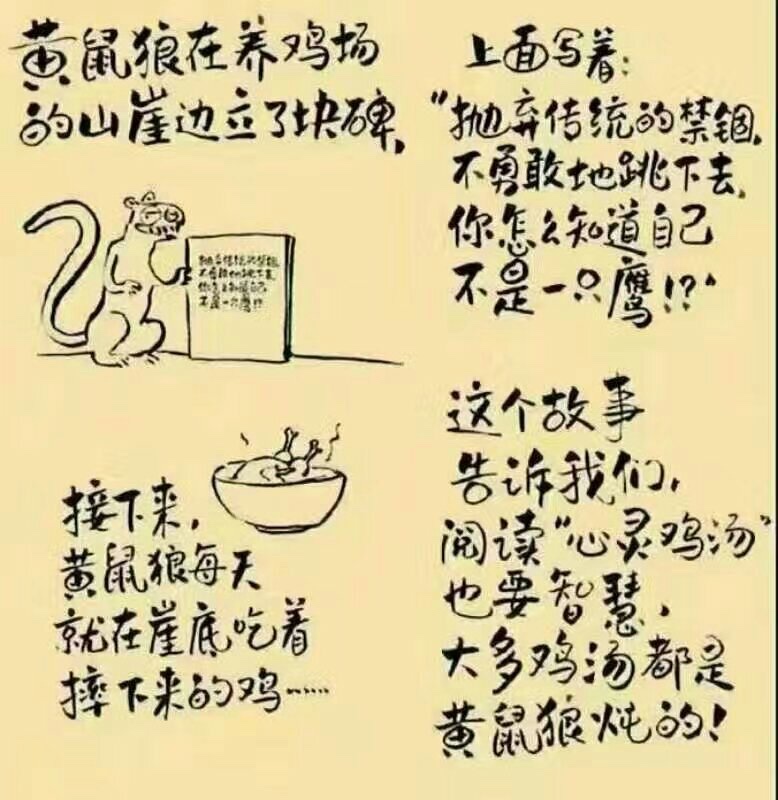 黄鼠狼在养鸡场
的山崖边立了块碑,
上面写着:
"抛弃传统的禁锢,
不勇敢地跳下去,
你怎么知道自己
不是一只鹰!?"
抛弃传统的禁锢
不勇敢地跳下去
你怎么知道自己
不是一只鹰!?
接下来,
黄鼠狼每天
就在崖底吃着
摔下来的鸡……
这个故事
告诉我们,
阅读"心灵鸡汤"
也要智慧,
大多鸡汤都是
黄鼠狼炖的!